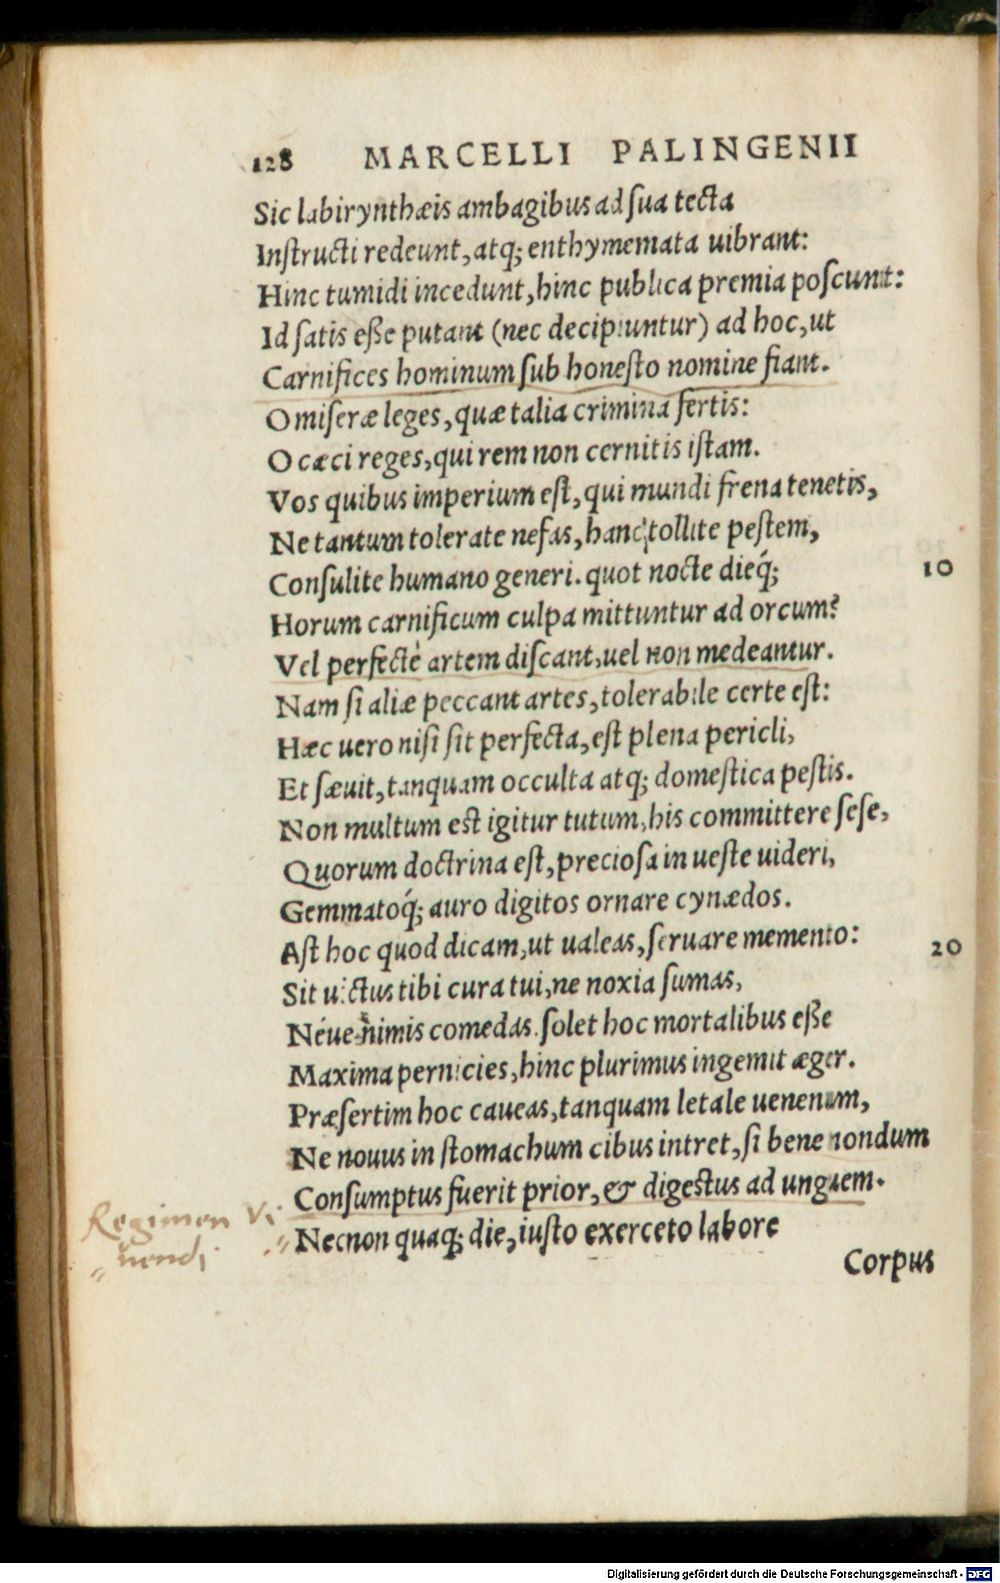 128 MARCELLI PALINGENII
Sic labirynthæis ambagibus ad ſua tecta
Inſtructi redeunt, atq; enthymemata uibrant:
Hinc tumidi incedunt, hinc publica premia poſcunt:
Id ſatis eſſe putant (nec decipiuntur) ad hoc, ut
Carnifices hominum ſub honeſto nomine fiant.
O miſeræ leges, quæ talia crimina fertis:
O cæci reges, qui rem non cernitis iſtam.
Vos quibus imperium eſt, qui mundi frena tenetis,
Ne tantum tolerate nefas, hanc tollite peſtem,
Conſulite humano generi. quot nocte dieq́; 10
Horum carnificum culpa mittuntur ad orcum?
Vel perfectè artem diſcant, uel non medeantur.
Nam ſi aliæ peccant artes, tolerabile certe eſt:
Hæc uero niſi ſit perfecta, eſt plena pericli,
Et ſæuit, tanquam occulta atq; domeſtica peſtis.
Non multum est igitur tutum, his committere ſeſe,
Quorum doctrina eſt, precioſa in ueſte uideri,
Gemmatoq́; auro digitos ornare cynædos.
Aſt hoc quod dicam, ut ualeas, ſeruare memento: 20
Sit uictus tibi cura tui, ne noxia ſumas,
Néue nimis comedas. ſolet hoc mortalibus eſſe
Maxima pernicies, hinc plurimus ingemit æger.
Præſertim hoc caueas, tanquam letale uenenum,
Ne nouus in ſtomachum cibus intret, ſi bene nondum
Conſumptus fuerit prior, & digestus ad unguem.
Regimen Vi
Necnon quaq; die, iuſto exerceto labore
uendi
Corpus
Digitalisierung gefördert durch die Deutsche Forschungsgemeinschaft - DFG